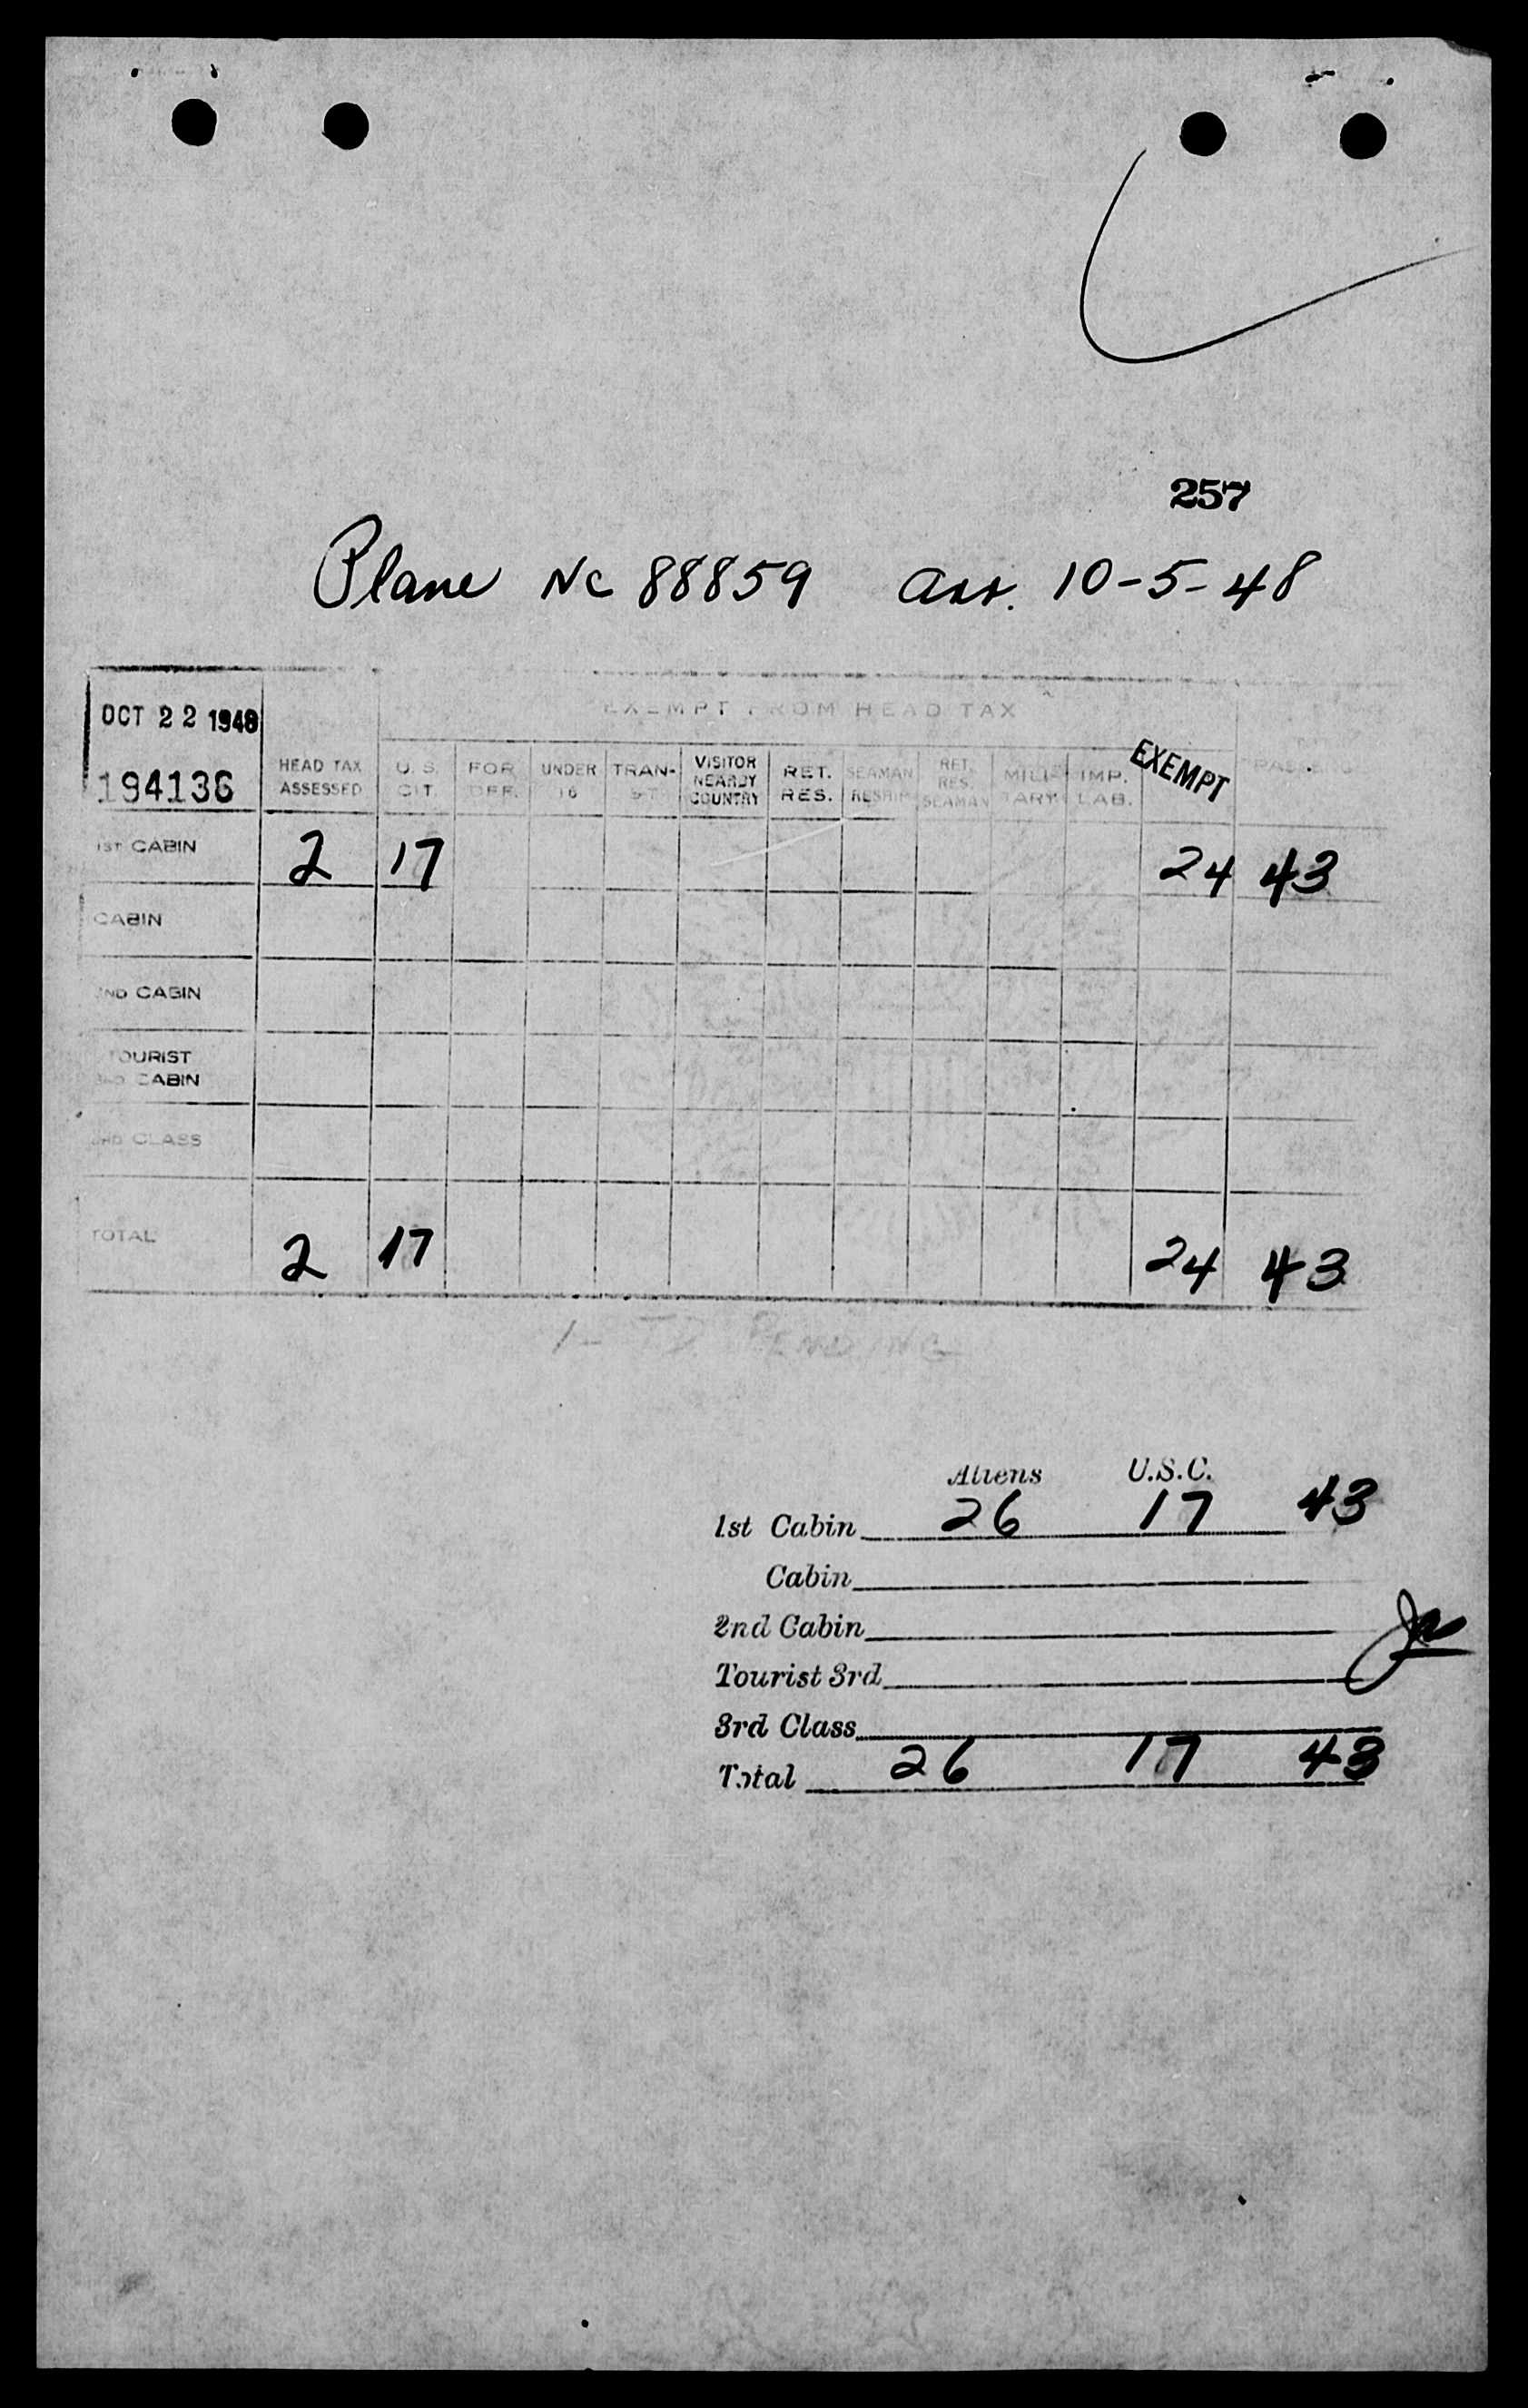 257
Plane NC 88859 arr. 10-5-48
EXEMPT FROM HEAD TAX
OCT 22 1948
194136
HEAD TAX ASSESSED U. S. CIT. FOR. UNDER 16 TRAN-SIT VISITOR NEARBY COUNTRY RET. RES. SEAMAN RESHIP RET. RES. SEAMAN MILI-TARY IMP. LAB. EXEMPT
1ST CABIN 2 17 24 43
CABIN
2ND CABIN
TOURIST
3RD CABIN
3RD CLASS
TOTAL 2 17 24 43
1- PENDING
Aliens U.S.C.
1st Cabin 26 17 43
Cabin
2nd Cabin
Tourist 3rd
3rd Class
Total 26 17 43